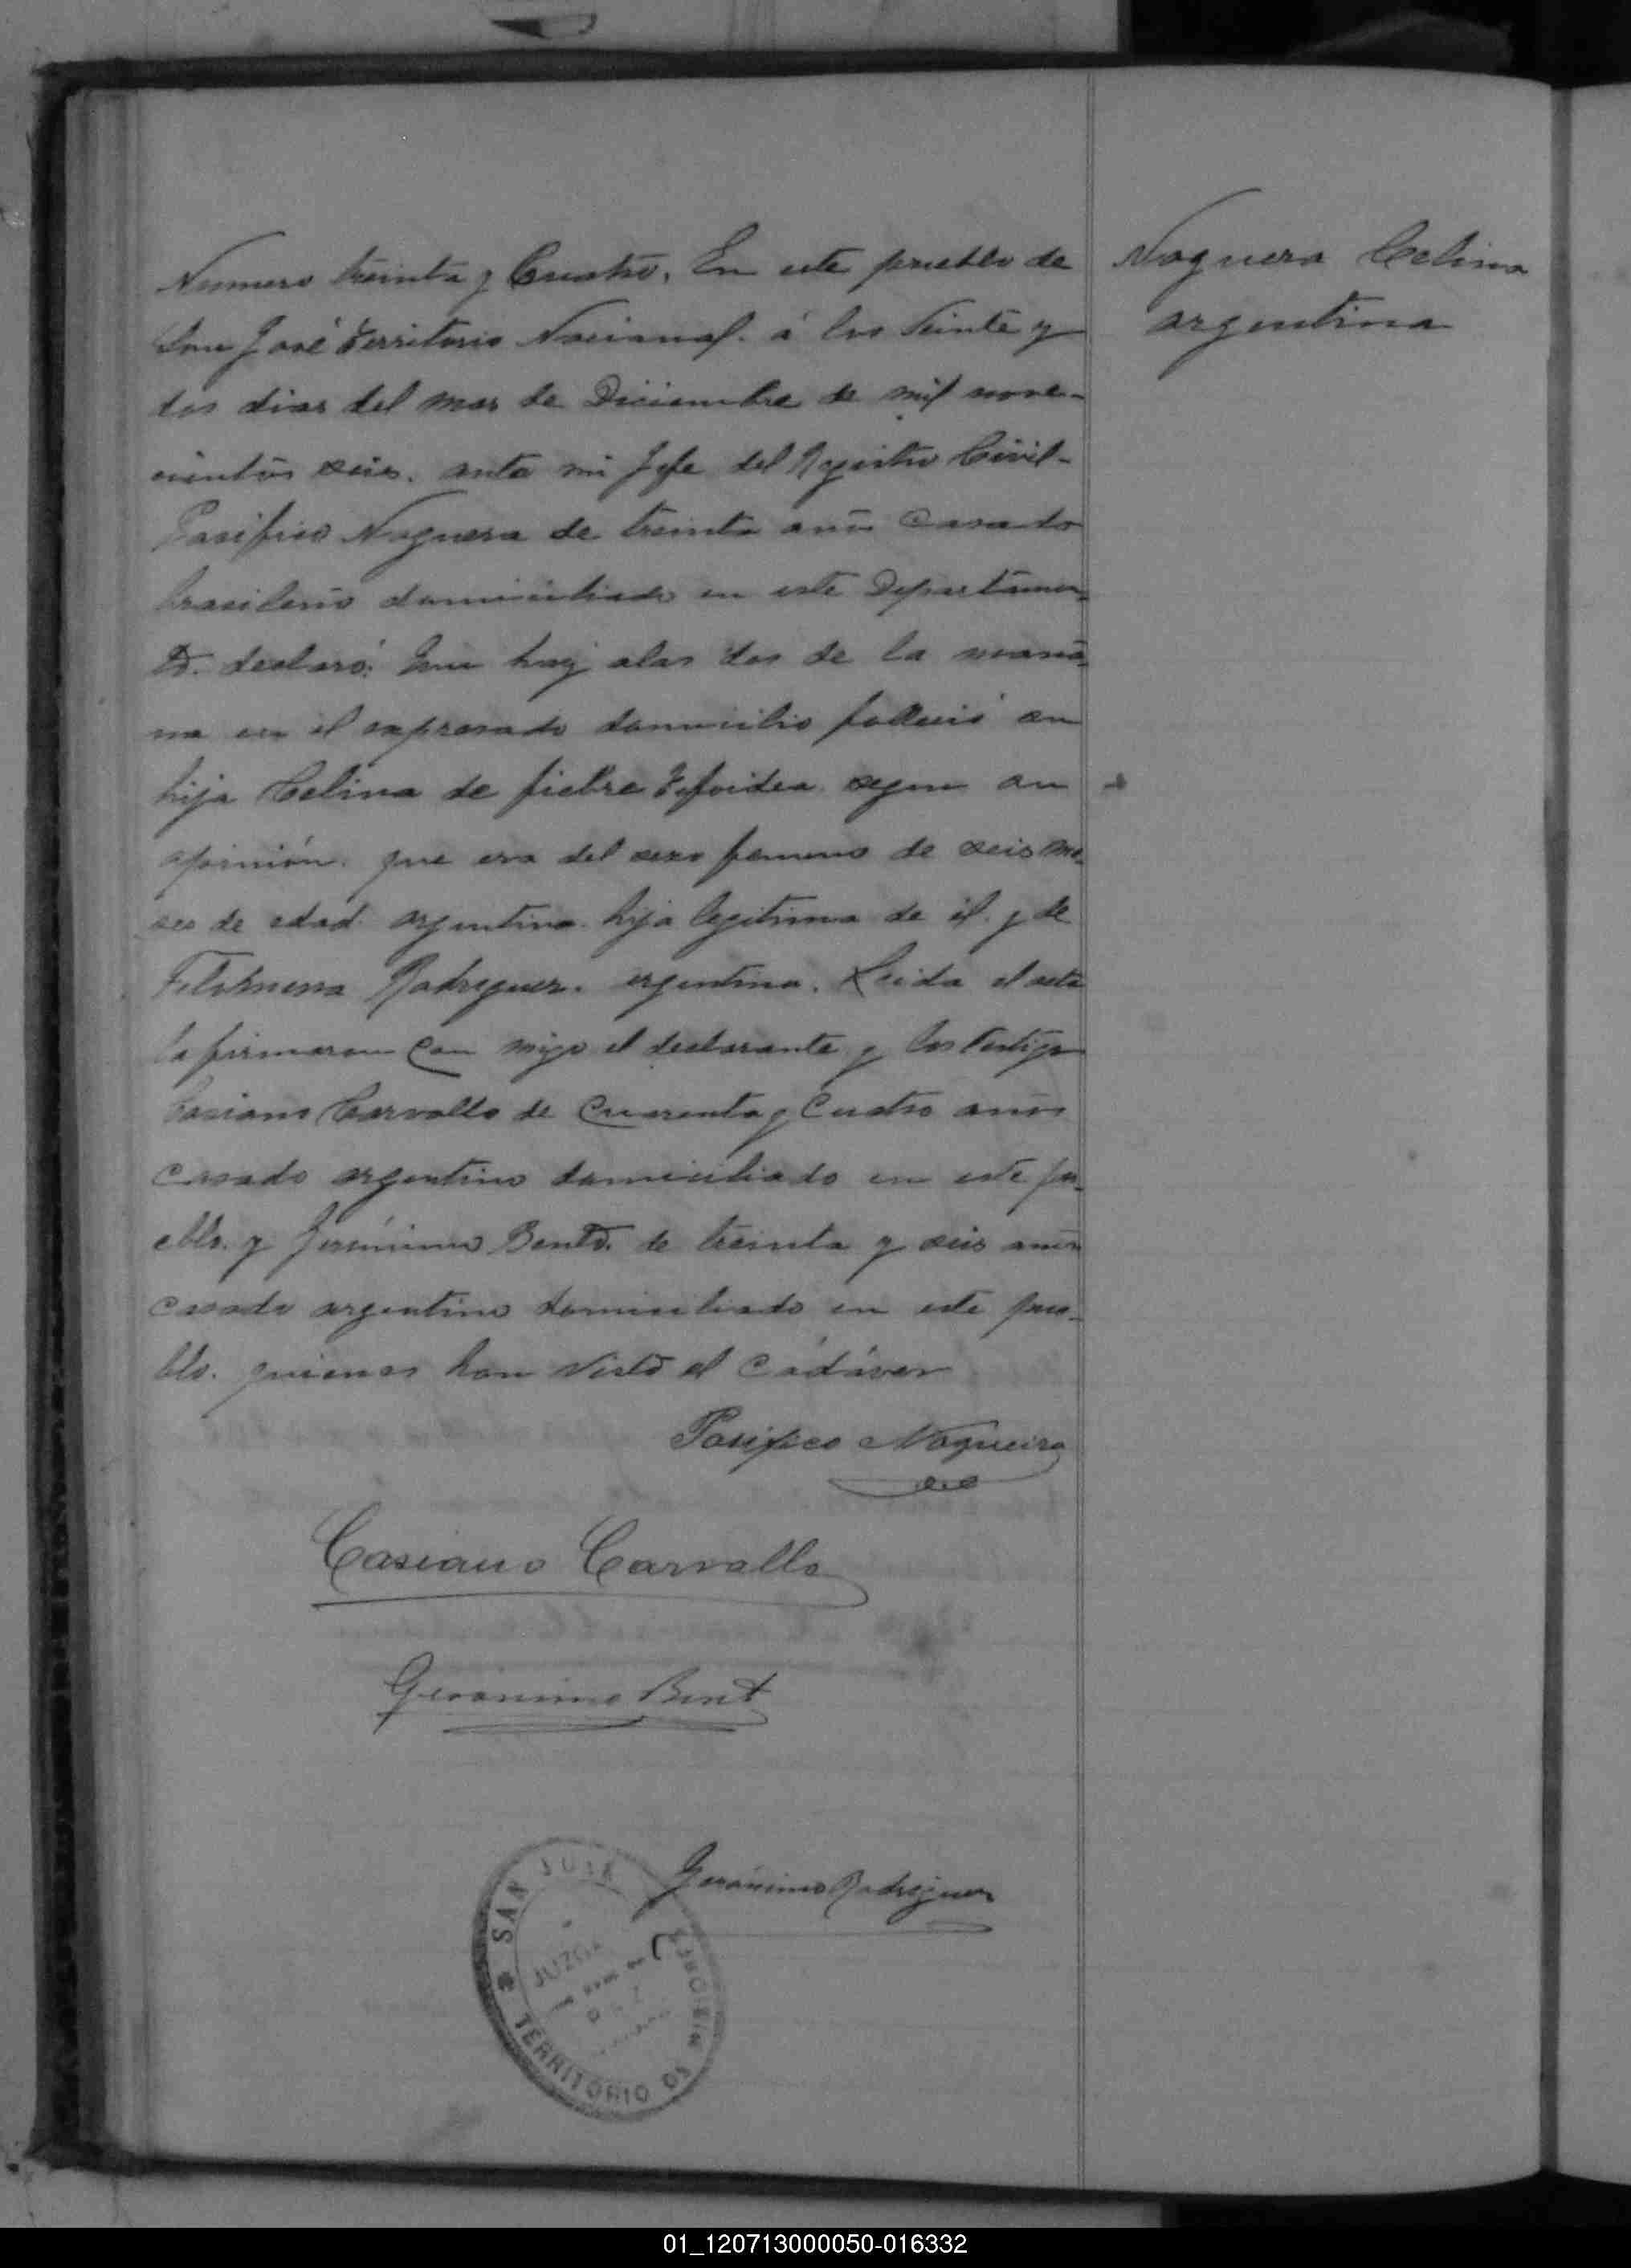 Numero treinta y Cuatro. En este pueblo de
San José Territorio Nacional. á los Veinte y
dos dias del mes de Diciembre de mil nove-
cientos seis. ante mi Jefe del Registro Civil-
Pasifico Noguera de treinta años Casado
brasilero domiciliado en este Departamen-
to. declaró: Que hoy alas dos de la maña-
na en el expresado domicilio falleció su
hija Celina de fiebre Tifoidea segun su
opinión. que era del sexo femeno de seis me-
ses de edad. argentina. hija legitima de él. y de
Filomena Rodriguez. argentina. Leida el acta
la firmaron Con migo el declarante y los testigos
Casiano Carvallo de Cuarenta y Cuatro años
Casado argentino domiciliado en este pu-
eblo. y Jerónimo Bento. de treinta y seis años
Casado argentino domiciliado en este pue-
blo. quienes han visto el Cadáver
Pasifico Nogueira
Casiano Carvallo
Geronimo Bent
Gerónimo Rodriguez
SAN JOSE
JUZGA
PAZ
TERRITORIO DE MISIONES
Noguera Celina
argentina
01_120713000050-016332